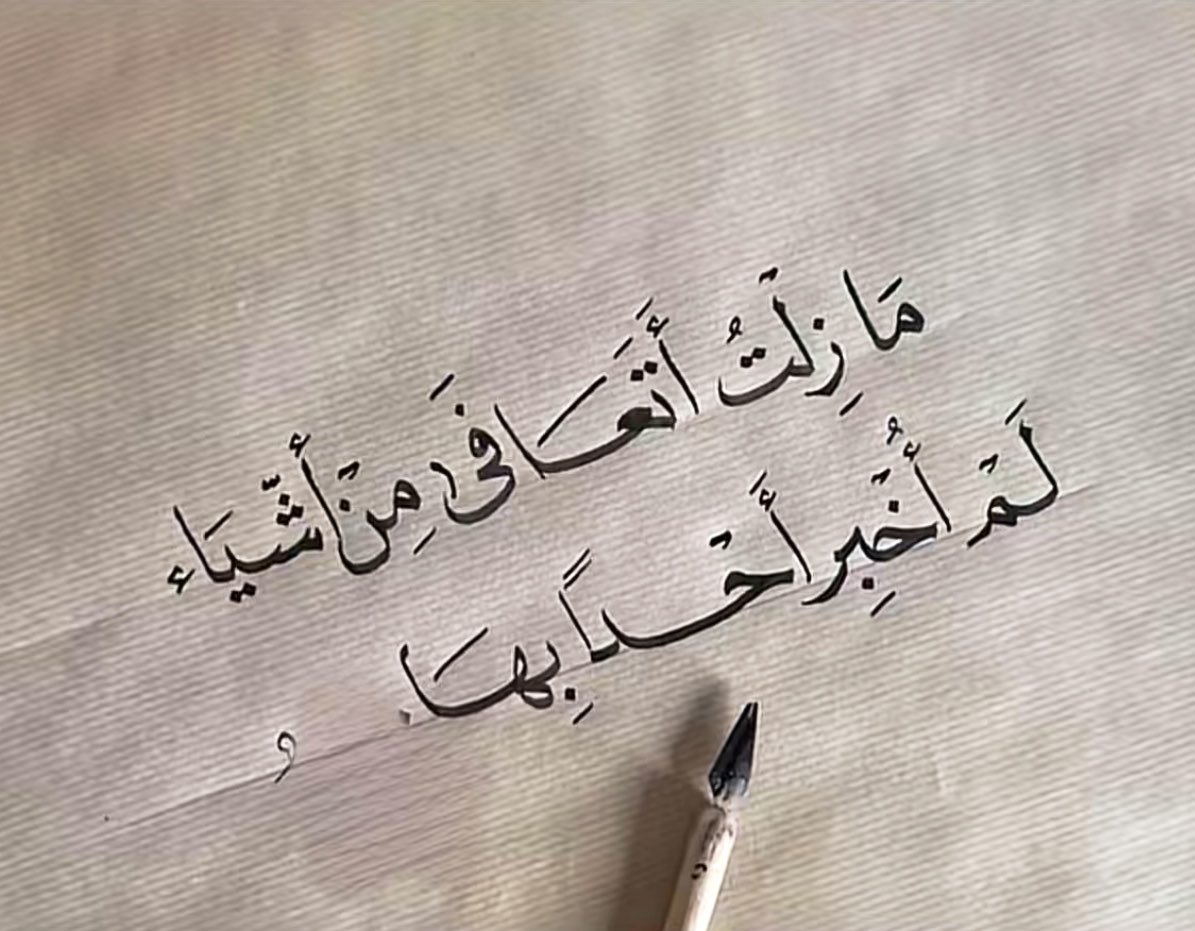 مَا زِلْتُ أَتَعَافَى مِنْ أَشْيَاء
لَمْ أُخْبِر أَحْداً بِهَا